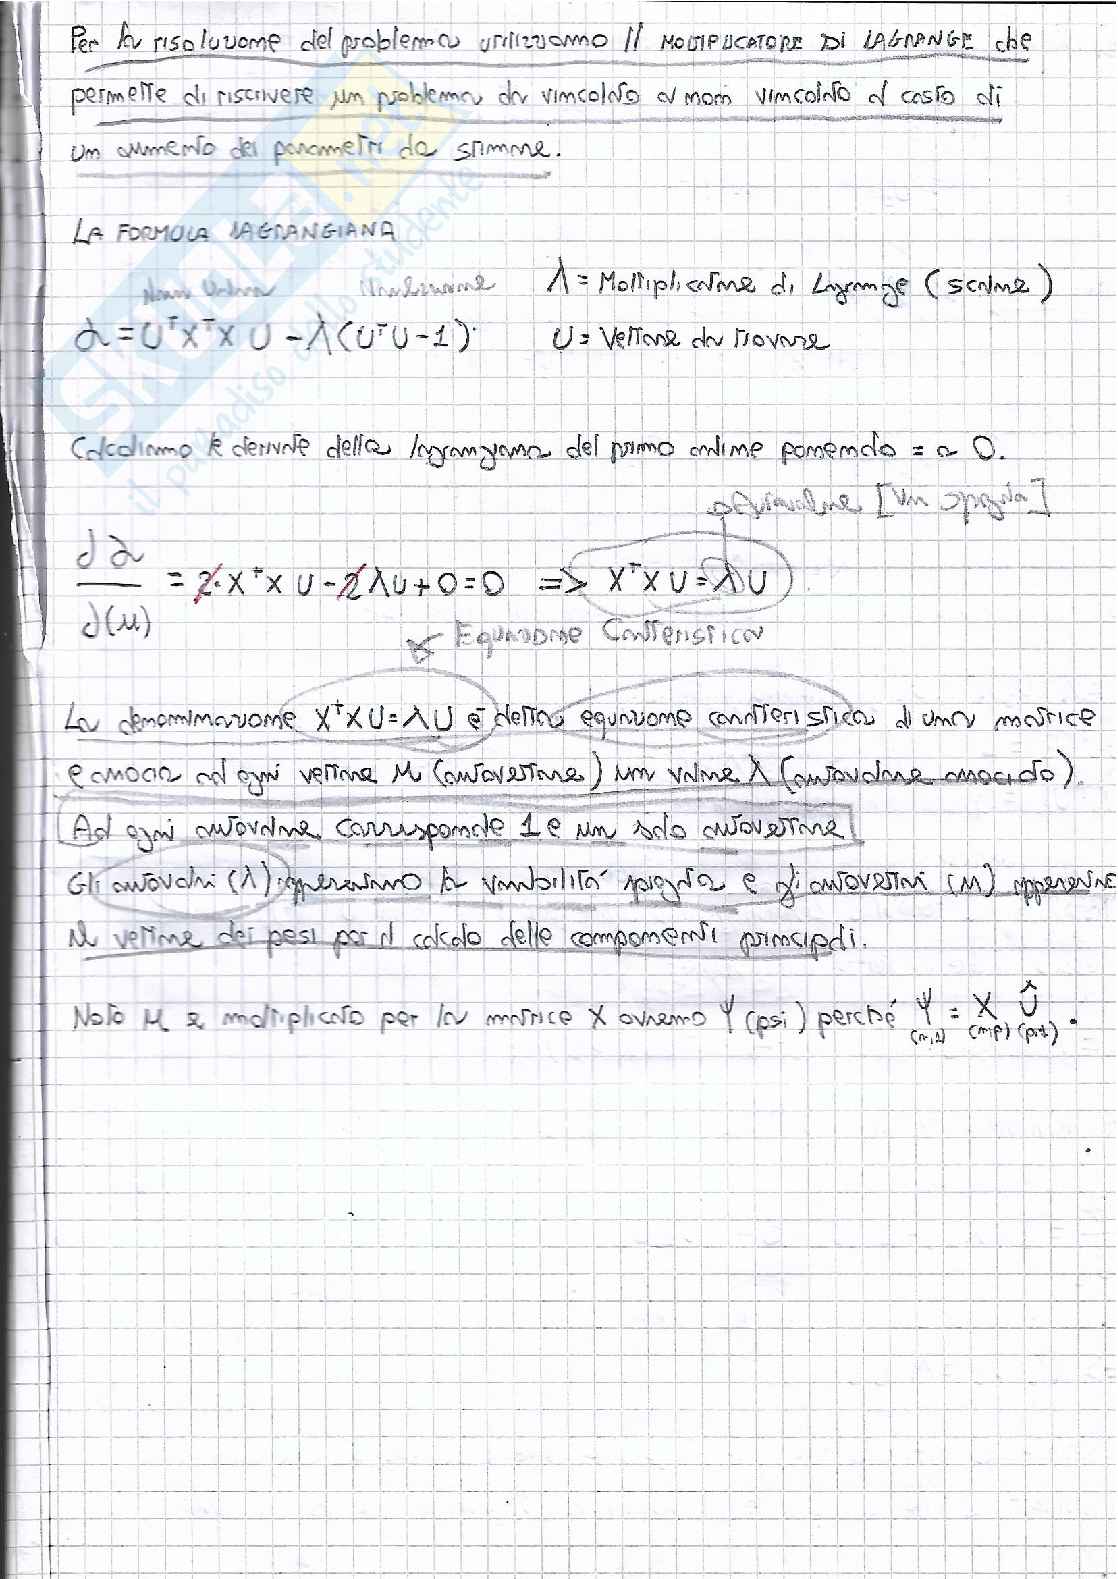 Per la risoluzione del problema utilizziamo Il MOLTIPLICATORE DI LAGRANGE che
permette di riscrivere un problema da vincolato a non vincolato al costo di
un aumento dei parametri da stimare.
LA FORMULA LAGRANGIANA
λ = Moltiplicatore di Lagrange (scalare)
ℒ = UᵀXᵀX U - λ(UᵀU-1)
U = Vettore da trovare
Calcoliamo le derivate della lagrangiana del primo ordine ponendo = a 0.
autovalore [Var spiegata]
∂ℒ/∂(u) = 2·XᵀX U - 2λU + 0 = 0 => XᵀX U = λU
Equazione Caratteristica
La denominazione XᵀX U = λU è detta equazione caratteristica di una matrice
e associa ad ogni vettore u (autovettore) un valore λ (autovalore associato).
Ad ogni autovalore corrisponde 1 e un solo autovettore
Gli autovalori (λ) rappresentano la variabilità spiegata e gli autovettori (u)
il vettore dei pesi per il calcolo delle componenti principali.
Noto u e moltiplicato per la matrice X avremo Ψ (psi) perché Ψ = X Û .
(n,1) (n,p) (p,1)
SKUOLA.net
il paradiso dello studente